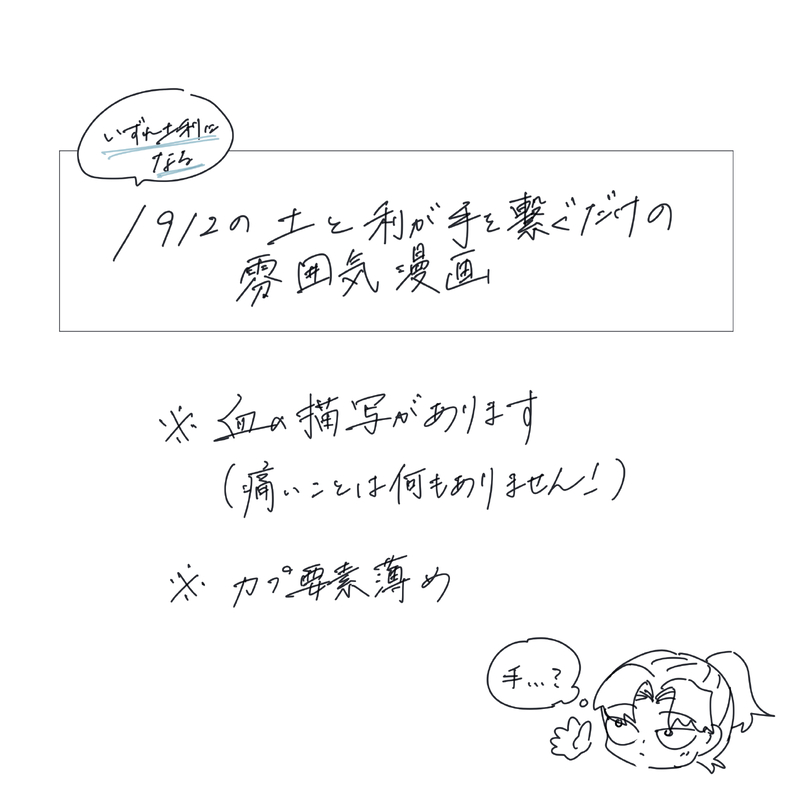 いずれ土利に
なる
1912の土と利が手を繋ぐだけの
雰囲気漫画
※ 血の描写があります
(痛いことは何もありません!)
※ カプ要素薄め
手…?